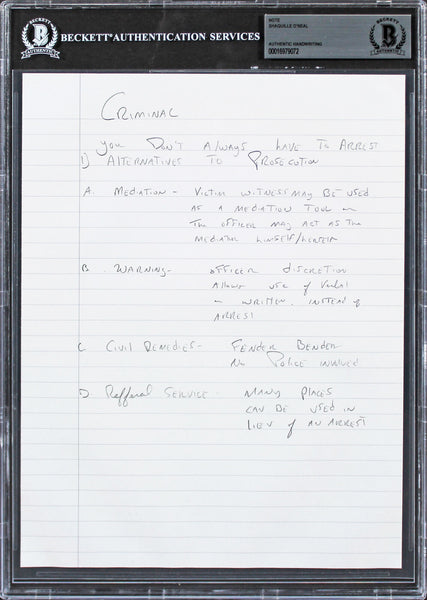 BECKETT AUTHENTICATION SERVICES
NOTE
SHAQUILLE O'NEAL
AUTHENTIC HANDWRITING
00016979072
CRIMINAL
You Don't Always Have To Arrest
1) Alternatives To Prosecution
A. Mediation - Victim witness may be used
as a mediation tool or
the officer may act as the
mediator himself/herself
B. Warning - officer discretion
allows use of verbal
or written, instead of
arrest
C. Civil Remedies - Fender Bender
No Police involved
D. Refferal Service - Many places
can be used in
lieu of an arrest